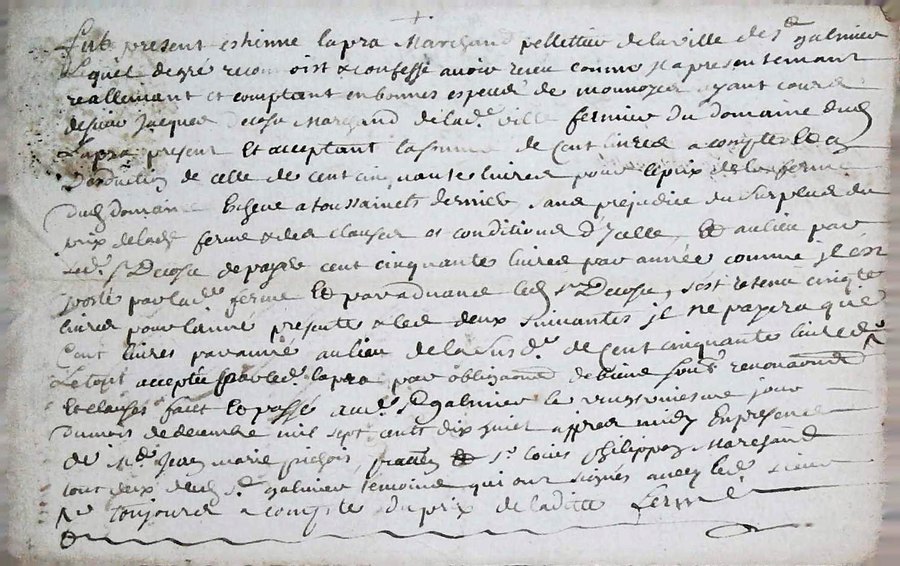 Fut present estienne lapra Marchand pellettier de la ville de St galmier
Lequel de gré reconnoist & confesse avoir receu comme il a presentemant
reallemant et comptant en bonnes especes de monnoyes ayant cours
de sieur Jacques Decose Marchand de lade ville fermier du domaine dud
Lapra present et acceptant la somme de Cent livres a compte et a
Deduction de celle de cent cinquante livres pour le prix de la ferme
dud domaine Echeue a toussaincts dernier sans prejudice du surplus du
prix de lade ferme & des clauses et conditions d'Icelle, Et au lieu par
Led. Sr Decose de payer cent cinquante livres par année comme il est
porté par lade ferme Et par advance led Sr Decose, s'est retenu cinqte
livres pour l'année presente & les deux suivantes il ne payera que
Cent livres par année au lieu de la susde de Cent cinquante livres
Le tout accepté par led. lapra par obligaon de biens soubs renonaons
Et clauses fait Et passé aud. St galmier le jour
Du mois de decembre mil sept cents dix huict appres midy En presence
de Mre Jean Marie et Sr Louis Philippon Marchand
tous deux dud St galmier temoins qui ont signés avec led sieur
toujours a compte du prix de laditte ferme